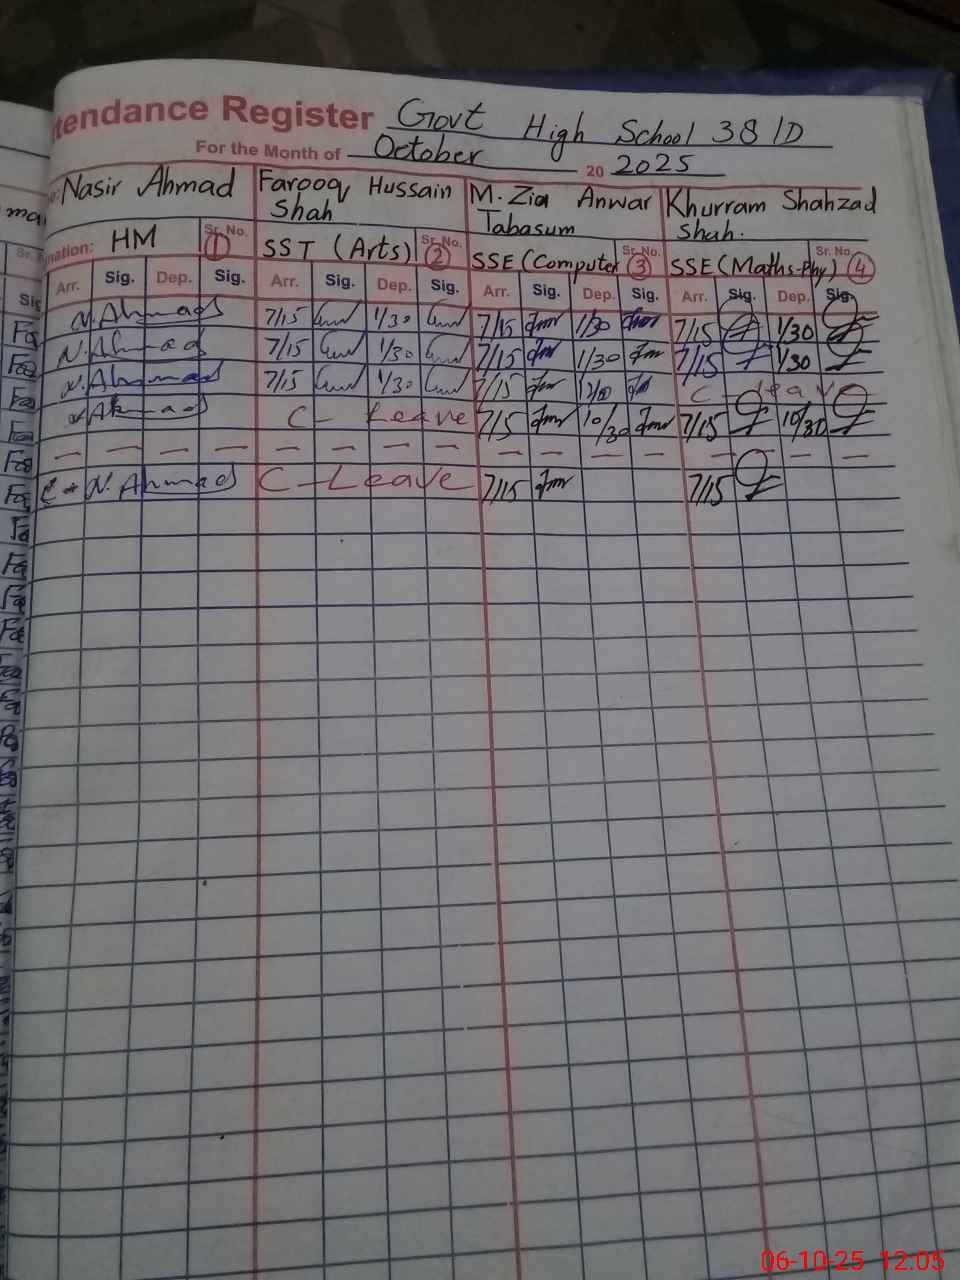 tendance Register Govt High School 38/D
For the Month of October 20 2025
Nasir Ahmad Farooq Hussain Shah M. Zia Anwar Tabasum Khurram Shahzad Shah.
nation: HM Sr. No. 1 SST (Arts) Sr. No. 2 SSE (Computer Sr. No. 3 SSE (Maths-Phy) Sr. No. 4
Arr. Sig. Dep. Sig. Arr. Sig. Dep. Sig. Arr. Sig. Dep. Sig. Arr. Sig. Dep. Sig.
N. Ahmad 7/15 1/30 7/15 1/30 7/15 1/30
N. Ahmad 7/15 1/30 7/15 1/30 7/15 1/30
N. Ahmad 7/15 1/30 7/15 C - leave
Ahmad C - Leave 7/15 10/30 7/15 10/30
— — — — — — — — — — — — — — —
N. Ahmad C - Leave 7/15 7/15
06-10-25 12:05